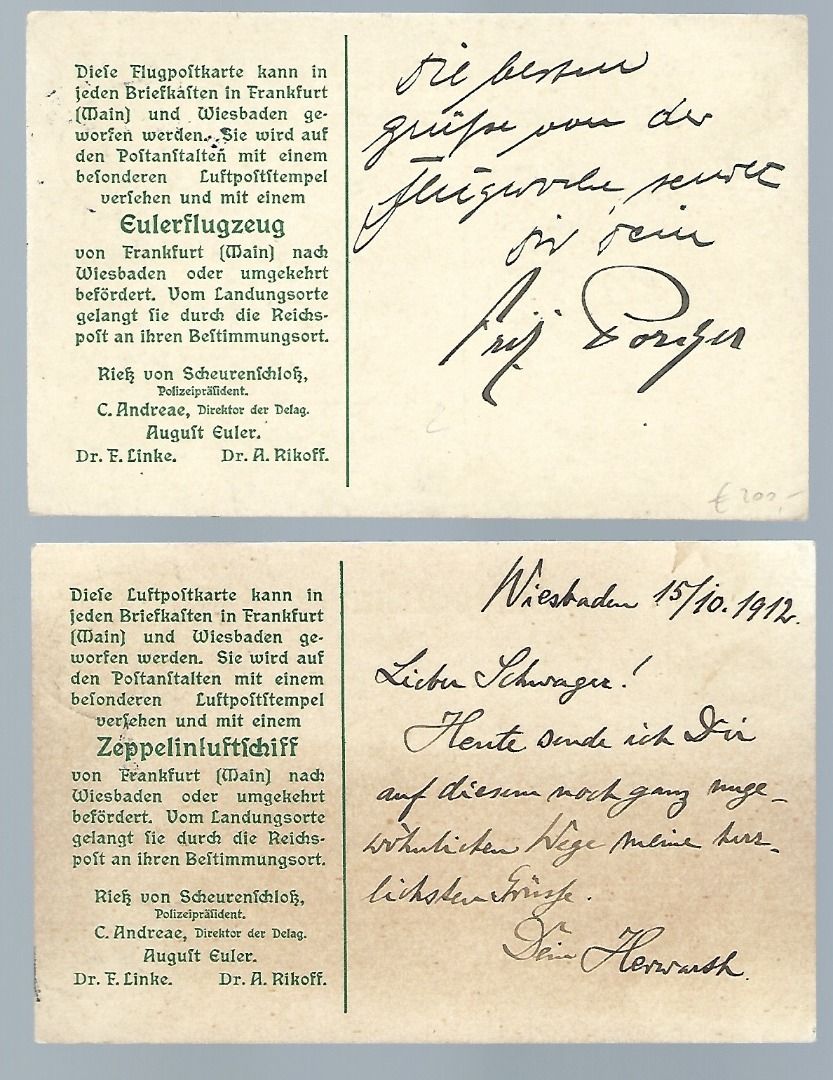 Diese Flugpostkarte kann in
jeden Briefkasten in Frankfurt
(Main) und Wiesbaden ge-
worfen werden. Sie wird auf
den Postanstalten mit einem
besonderen Luftpoststempel
versehen und mit einem
Eulerflugzeug
von Frankfurt (Main) nach
Wiesbaden oder umgekehrt
befördert. Vom Landungsorte
gelangt sie durch die Reichs-
post an ihren Bestimmungsort.
Rieß von Scheurenschloß,
Polizeipräsident.
C. Andreae, Direktor der Delag.
August Euler.
Dr. F. Linke. Dr. A. Rikoff.
Die besten
Grüße von der
Flugwoche, sendet
Dir Dein
€ 200,-
Diese Luftpostkarte kann in
jeden Briefkasten in Frankfurt
(Main) und Wiesbaden ge-
worfen werden. Sie wird auf
den Postanstalten mit einem
besonderen Luftpoststempel
versehen und mit einem
Zeppelinluftschiff
von Frankfurt (Main) nach
Wiesbaden oder umgekehrt
befördert. Vom Landungsorte
gelangt sie durch die Reichs-
post an ihren Bestimmungsort.
Rieß von Scheurenschloß,
Polizeipräsident.
C. Andreae, Direktor der Delag.
August Euler.
Dr. F. Linke. Dr. A. Rikoff.
Wiesbaden 15/10.1912.
Lieber Schwager!
Heute sende ich Dir
auf diesem noch ganz unge-
wöhnlichen Wege meine herz-
lichsten Grüsse.
Dein Herwarth.